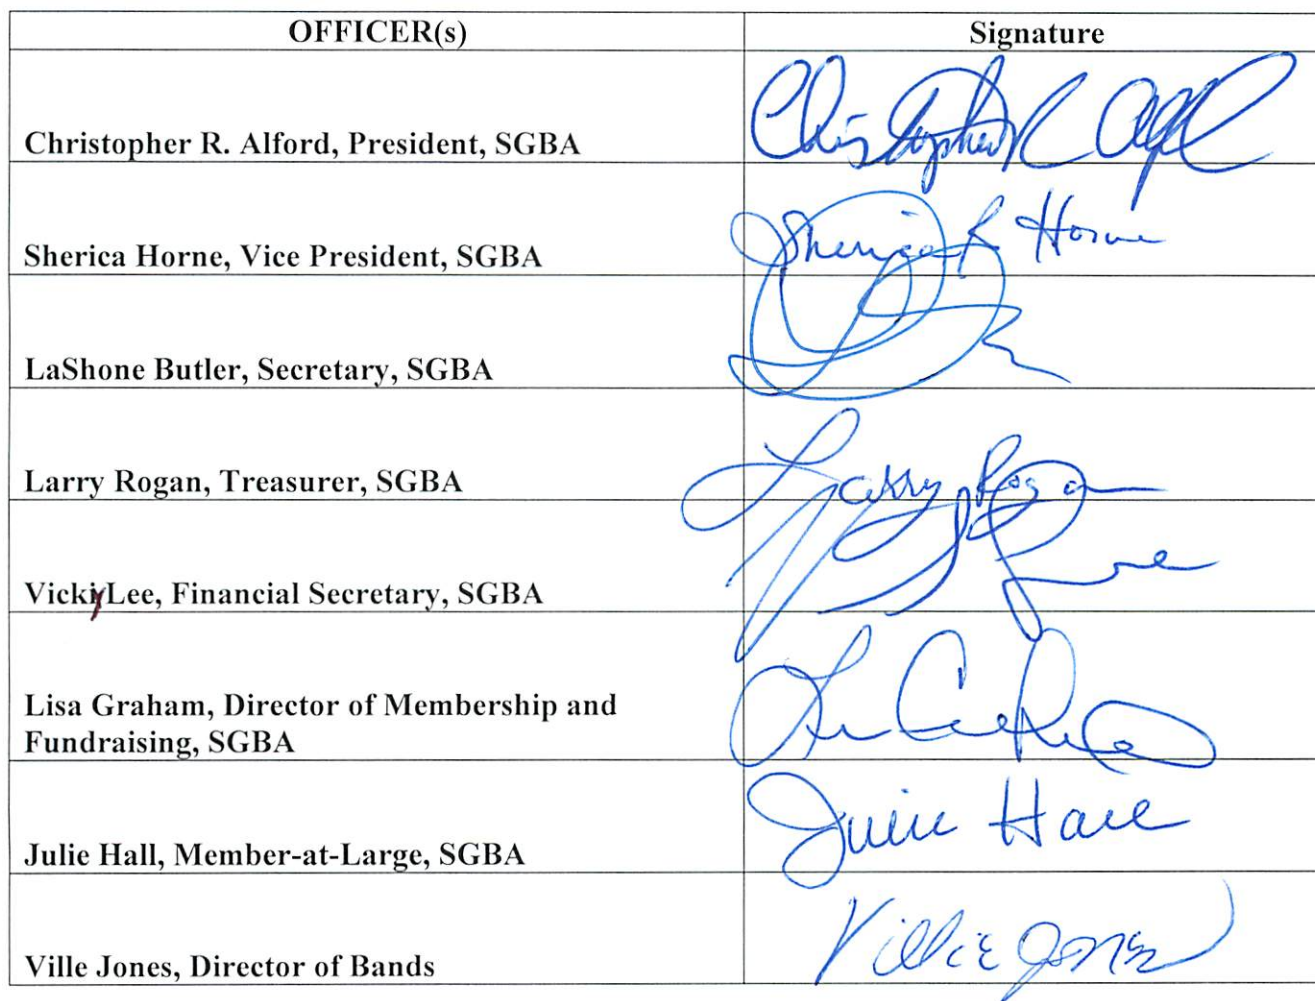 OFFICER(s) Signature
Christopher R. Alford, President, SGBA Christopher R Alford
Sherica Horne, Vice President, SGBA Sherica R Horne
LaShone Butler, Secretary, SGBA
Larry Rogan, Treasurer, SGBA Larry Rogan
Vicky Lee, Financial Secretary, SGBA
Lisa Graham, Director of Membership and
Fundraising, SGBA
Julie Hall, Member-at-Large, SGBA Julie Hall
Ville Jones, Director of Bands Villie Jones